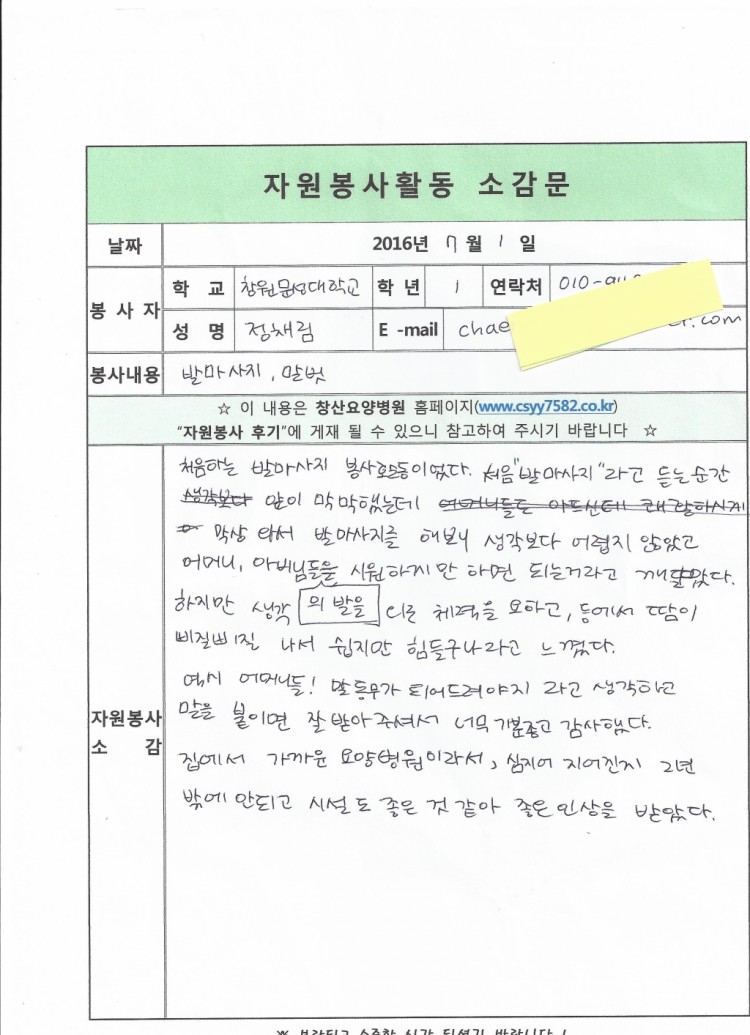 자원봉사활동 소감문
날짜 2016년 7월 1일
봉사자 학교 창원문성대학교 학년 1 연락처 010-
성명 정채림 E-mail chae .com
봉사내용 발마사지, 말벗
☆ 이 내용은 창산요양병원 홈페이지(www.csyy7582.co.kr)
"자원봉사 후기"에 게재 될 수 있으니 참고하여 주시기 바랍니다 ☆
자원봉사 소감
처음하는 발마사지 봉사활동이었다. 처음 "발마사지"라고 듣는순간
생각보다 앞이 막막했는데
막상 와서 발마사지를 해보니 생각보다 어렵지 않았고
어머니, 아버님들을 시원하지만 하면 되는거라고 깨달았다.
하지만 생각 의 발을 체력을 요하고, 등에서 땀이
삐질삐질 나서 쉽지만 힘들구나라고 느꼈다.
역시 어머니들! 말동무가 되어드려야지 라고 생각하고
말을 붙이면 잘 받아주셔서 너무 기분좋고 감사했다.
집에서 가까운 요양병원이라서, 심지어 지어진지 2년
밖에 안되고 시설도 좋은 것 같아 좋은인상을 받았다.